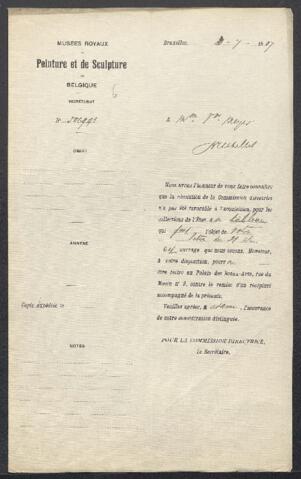 MUSÉES ROYAUX
DE
Peinture et de Sculpture
DE
BELGIQUE
SECRÉTARIAT
N°
OBJET
ANNEXE
Copie expédiée le
NOTES
Bruxelles, -7-
à
Bruxelles
Nous avons l'honneur de vous faire connaître
que la résolution de la Commission directrice
n'a pas été favorable à l'acquisition, pour les
collections de l'Etat, tableau
qui fait l'objet de votre
lettre du
ouvrage que nous tenons, Monsieur,
à votre disposition, pourra
être retiré au Palais des Beaux-Arts, rue du
Musée n° 9, contre la remise d'un récépissé
accompagné de la présente.
Veuillez agréer, l'assurance
de notre considération distinguée.
POUR LA COMMISSION DIRECTRICE,
le Secrétaire.